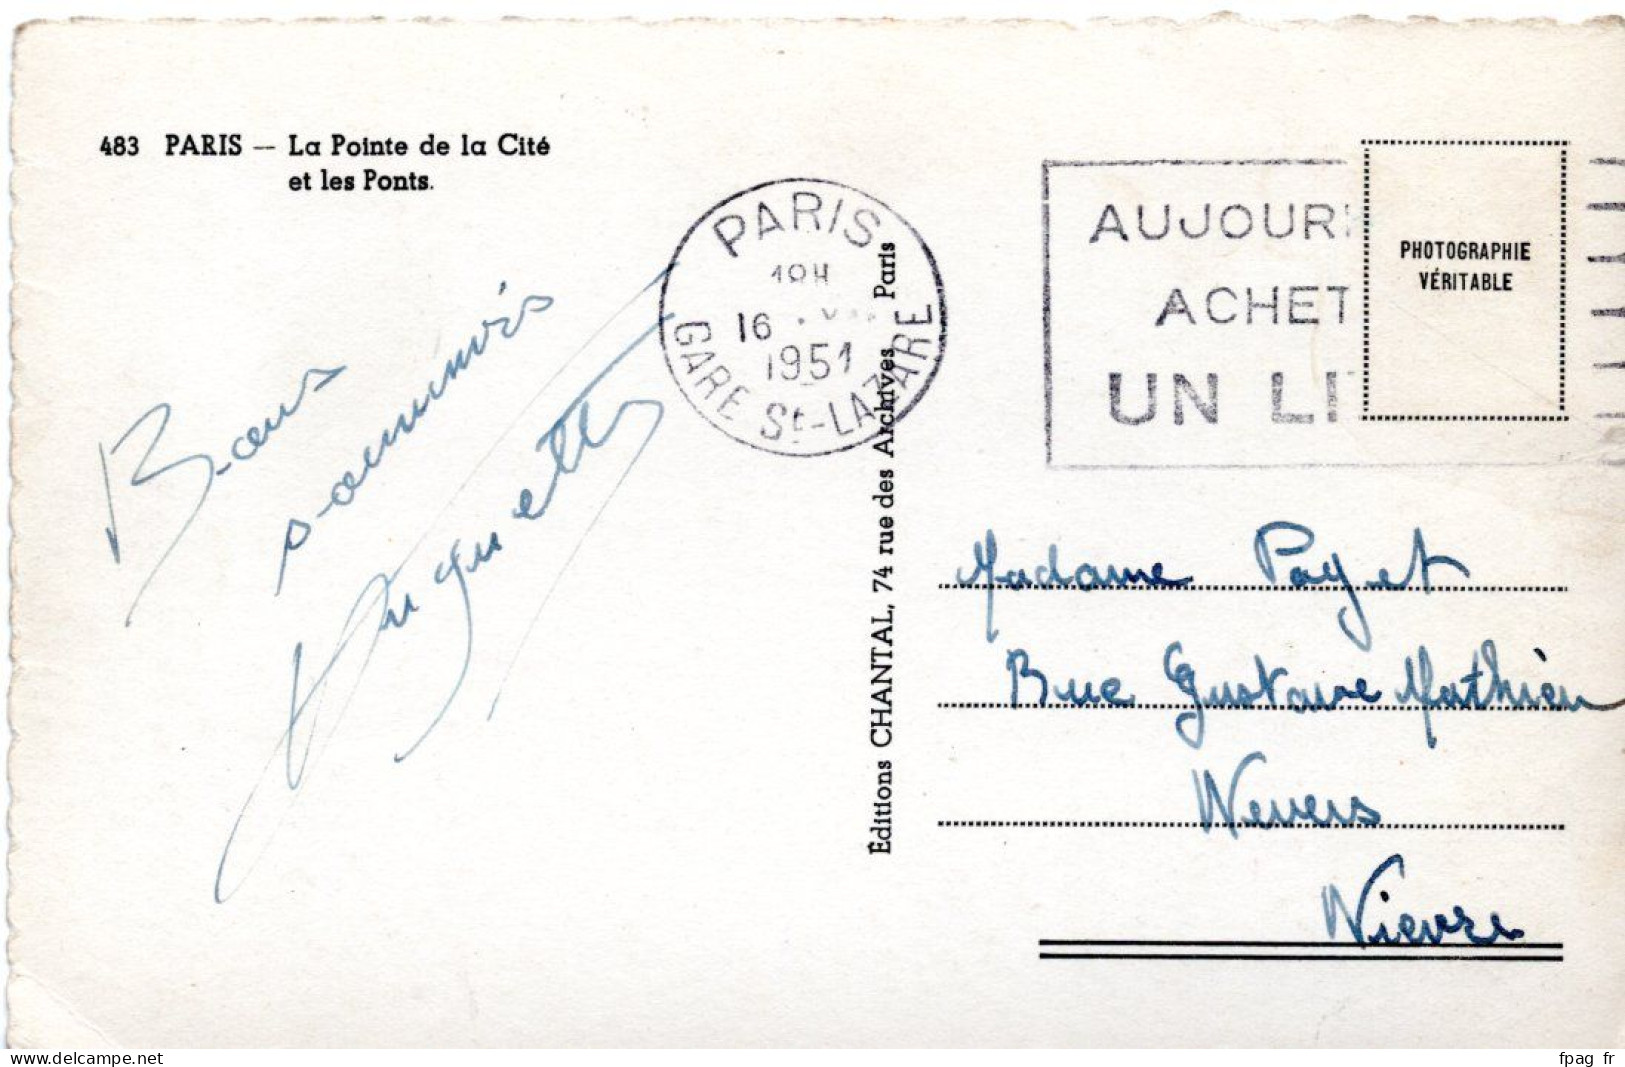 483 PARIS — La Pointe de la Cité
et les Ponts.
Bons
souvenirs
Huguette
PARIS
18H
16
1951
GARE St-LAZARE
Éditions CHANTAL, 74 rue des Archives Paris
AUJOUR
ACHET
UN LI
PHOTOGRAPHIE
VÉRITABLE
Madame Paget
Rue Gustave Mathieu
Nevers
Nièvre
delcampe.net
fpag_fr